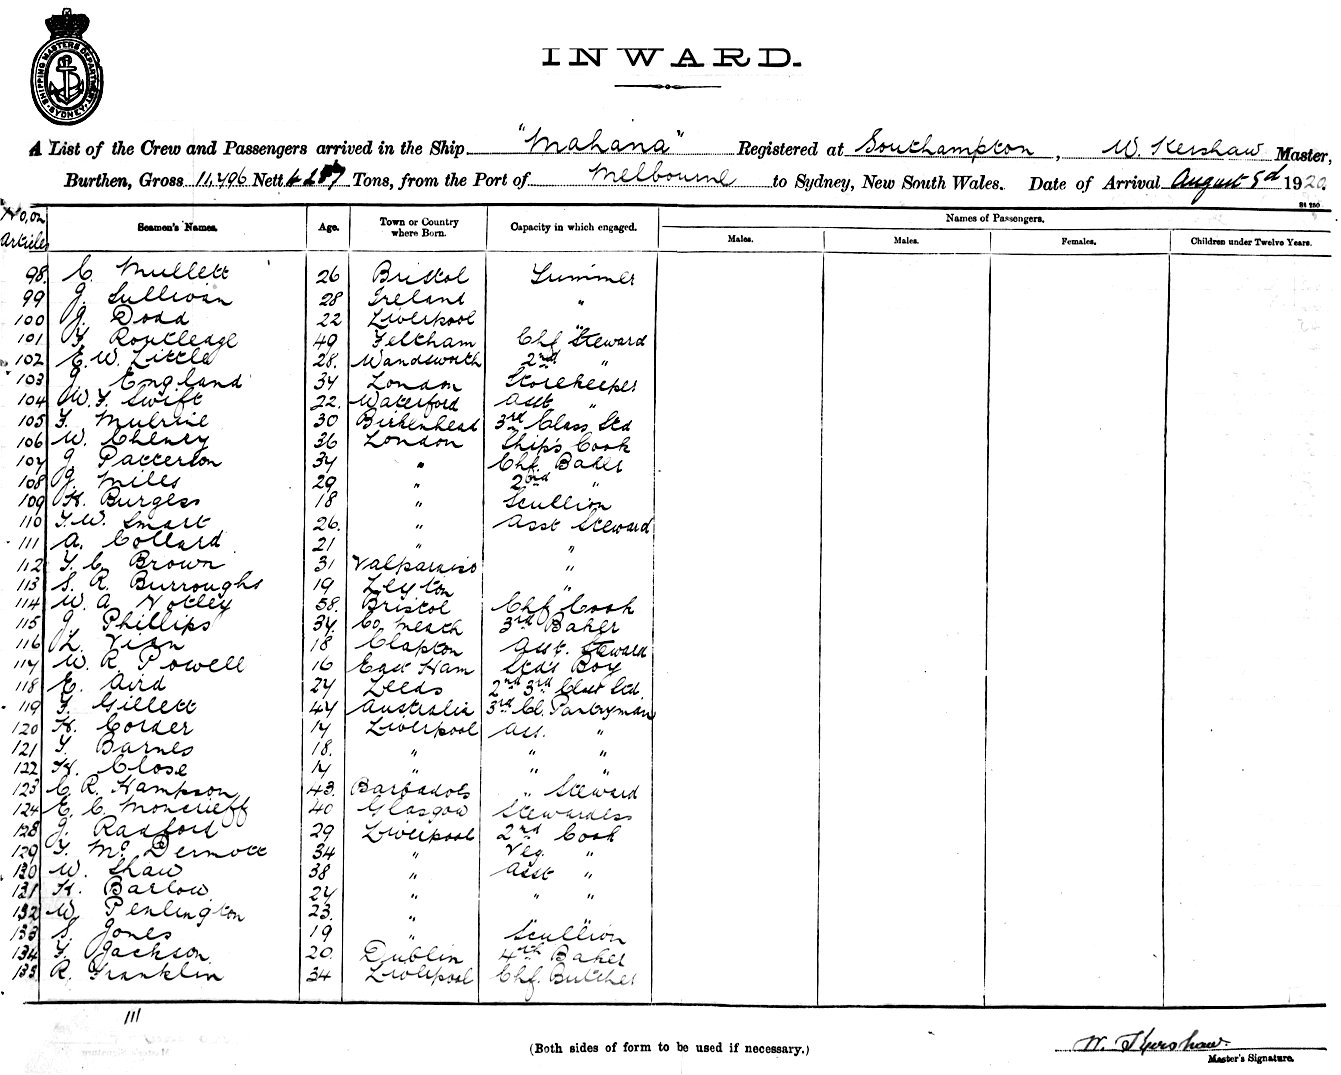 SHIPPING MASTERS DEPARTMENT SYDNEY
INWARD.
A List of the Crew and Passengers arrived in the Ship "Mahana" Registered at Southampton, W. Kershaw Master,
Burthen, Gross 11,496 Nett Tons, from the Port of Melbourne to Sydney, New South Wales. Date of Arrival August 1920
No. on Articles Seamen's Names. Age. Town or Country where Born. Capacity in which engaged. Names of Passengers.
Males. Males. Females. Children under Twelve Years.
98. C. Mullett 26 Bristol Trimmer
99 J. Sullivan 28 Ireland "
100 J. Dodd 22 Liverpool "
101 F. Routledge 49 Feltham Chf Steward
102 E.W. Little 28. Wandsworth 2nd "
103 J. England 34 London Storekeeper
104 W.F. Swift 22. Waterford Asst "
105 F. Mulrine 30 Birkenhead 3rd Class Std
106 W. Cheney 36 London Ship's Cook
107 J. Patterson 34 " Chf. Baker
108 J. Miles 29 " 2nd "
109 H. Burgess 18 " Scullion
110 F.W. Smart 26. " Asst Steward
111 A. Collard 21 " "
112 F. C. Brown 31 Valparaiso "
113 S. R. Burroughs 19 Leyton "
114 W. A. Notley 58. Bristol Chf Cook
115 J. Phillips 34. Co. Meath 3rd Baker
116 L. Vian 18 Clapton Asst. Steward
117 W. R. Powell 16 East Ham Std's Boy
118 E. Aird 24 Leeds 2nd 3rd Class Std.
119 F. Gillett 44 Australia 3rd Cl. Pantryman
120 H. Corder 17 Liverpool Ast. "
121 F. Barnes 18. " " "
122 H. Close 17 " " "
123 C. R. Hampson 43. Barbados " Steward
124 E. C. Moncrieff 40 Glasgow Stewardess
128 J. Radford 29 Liverpool 2nd Cook
129 F. McDermott 34 " Veg. "
130 W. Shaw 38 " Asst "
131 H. Barlow 24 " " "
132 W. Penlington 23. " " "
133 S. Jones 19 " Scullion
134 F. Jackson 20. Dublin 4th Baker
135 R. Franklin 34 Liverpool Chf. Butcher
111
(Both sides of form to be used if necessary.)
W. Kershaw
Master's Signature.